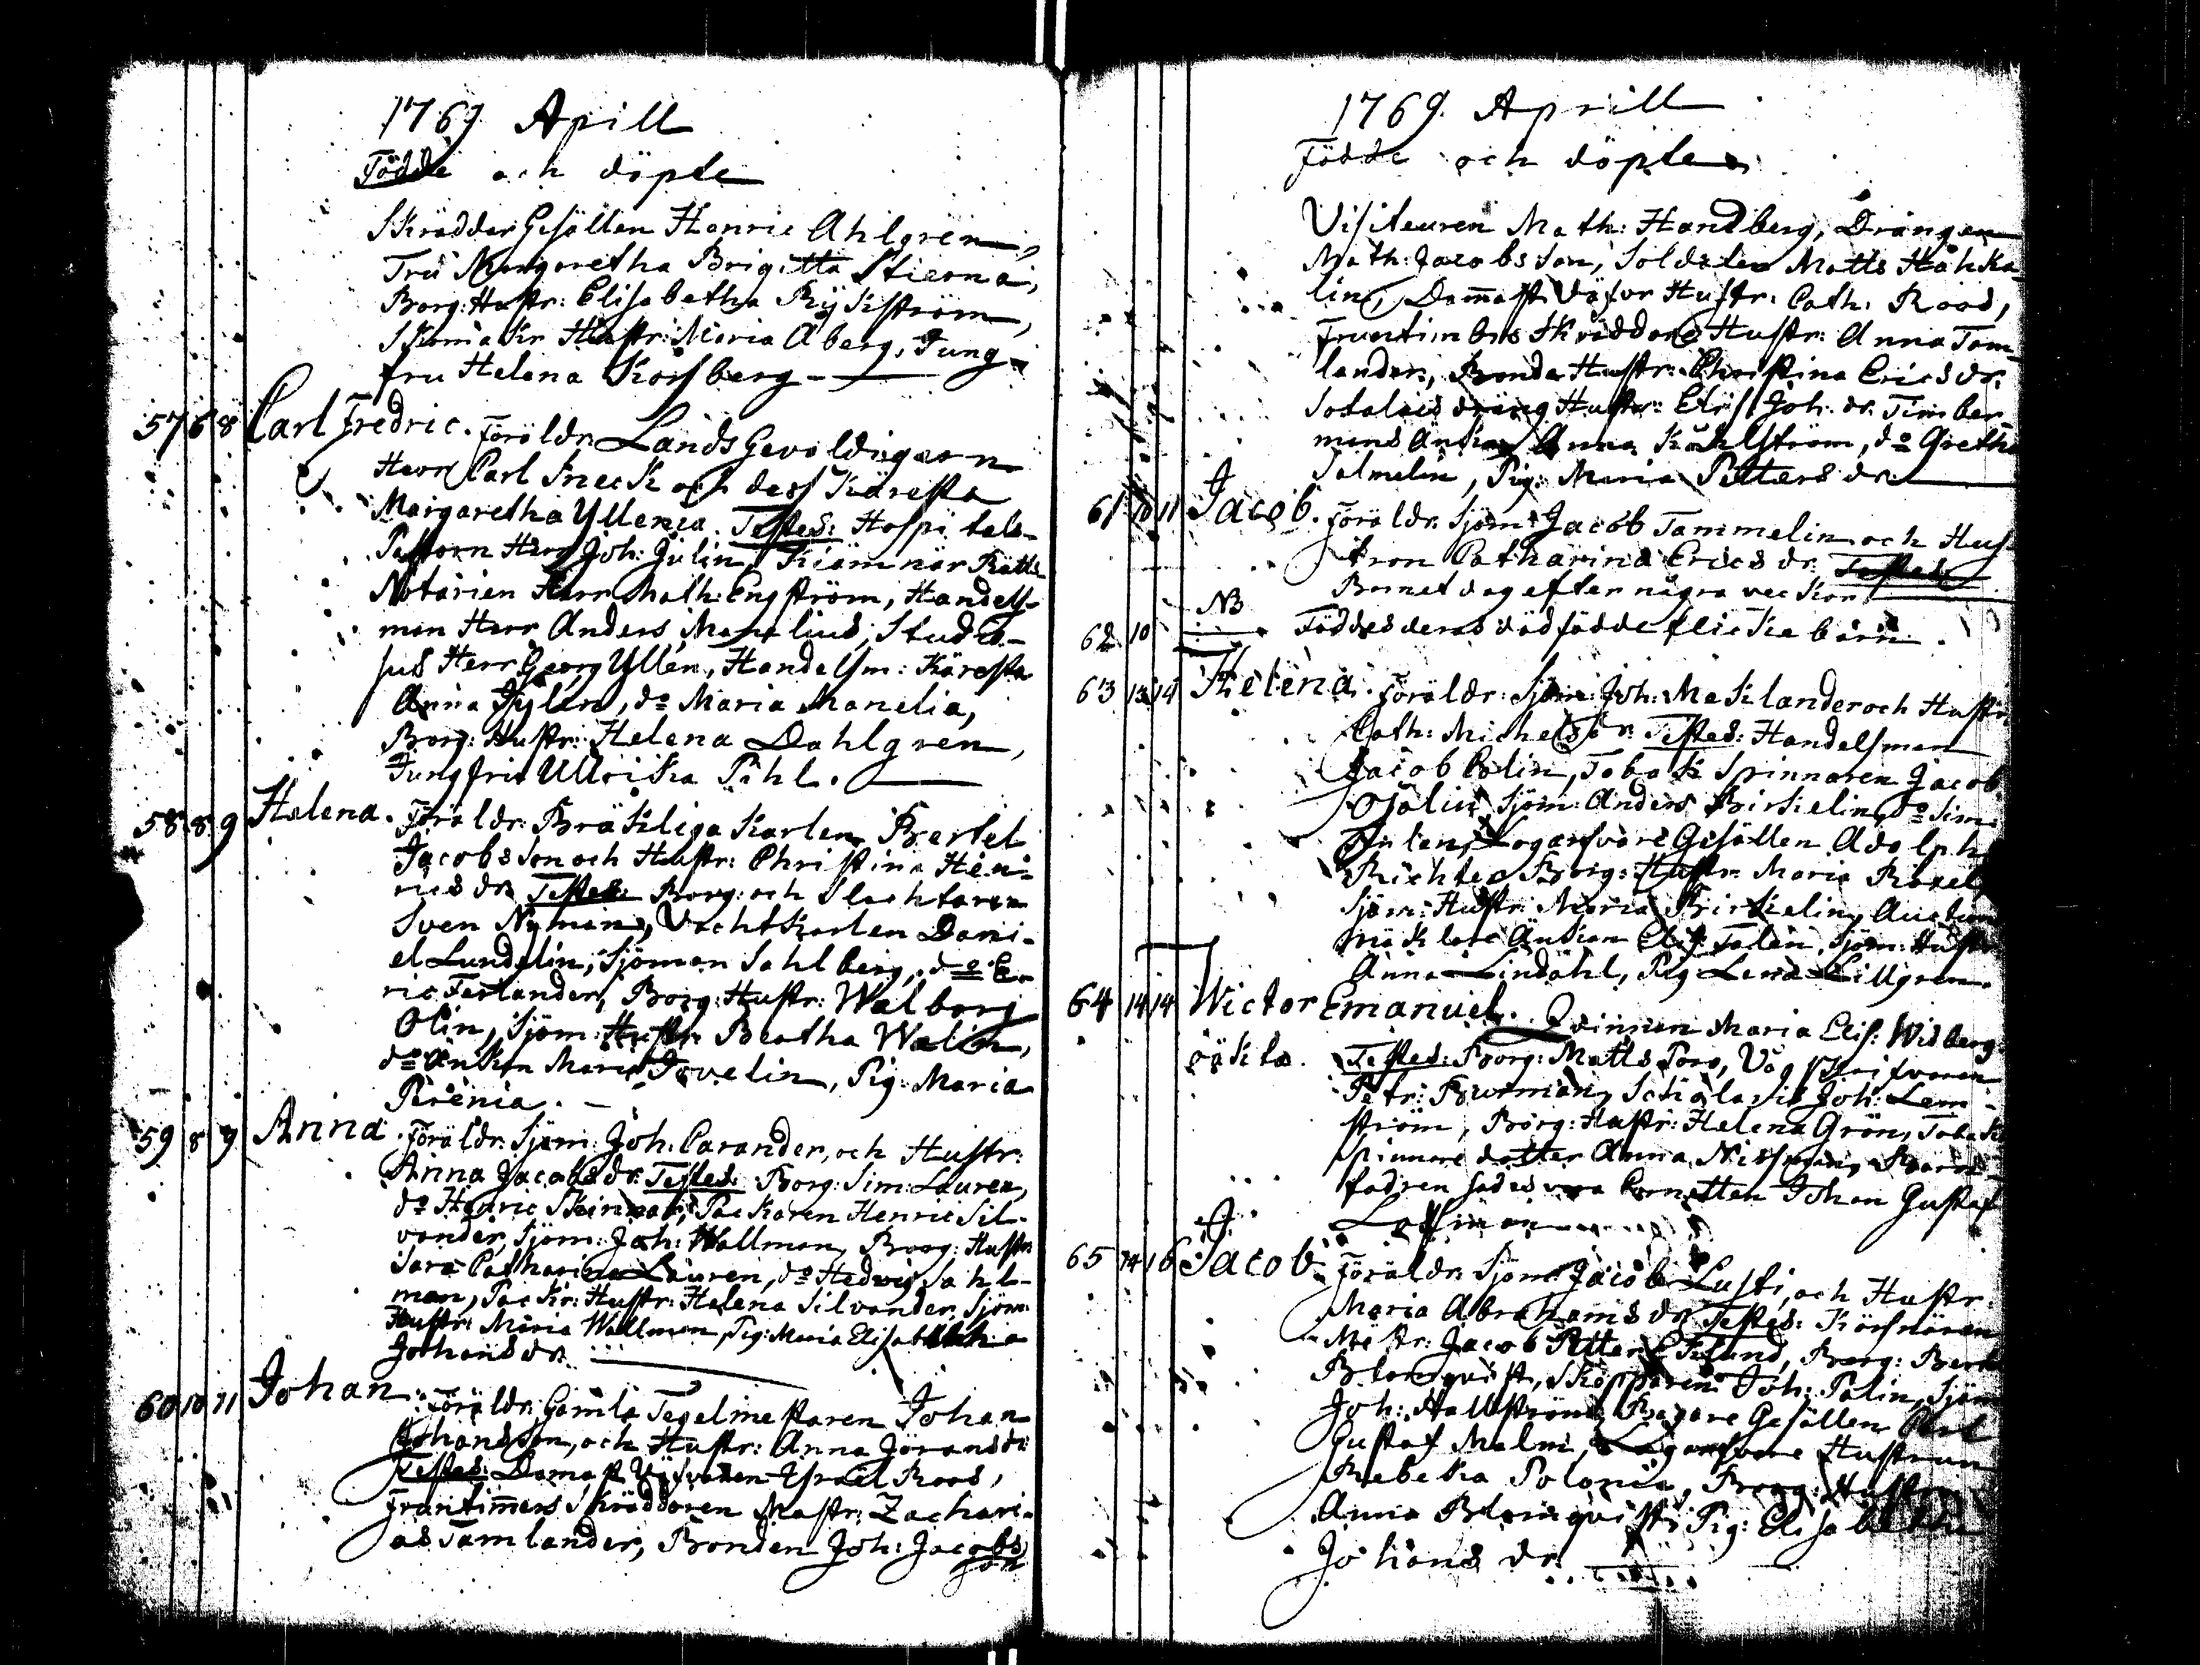 1769 Aprill
Födde och döpte
Skrädder Gesällen Henric Ahlgren,
Fru Margaretha Brigitta Stierna,
Borg: Hustr: Elisabetha Rykström,
Skomakr Hustr: Maria Åberg, Jung-
fru Helena Korsberg
57 6 8 Carl Fredric. Föräldr: Lands Gevaldigern
Herr Carl Kneck och dess Käresta
Margaretha Yllenia. Testes: Hospitals-
Pastorn Herr Joh: Julin, Kiämnär Rätts
Notarien Herr Math: Engström, Handels-
man Herr Anders Manelius, Studio-
sus Herr Georg Yllén, Handelsm: Käresta
Anna , do Maria Manelia,
Borg: Hustr: Helena Dahlgren,
Jungfru Ullrika Pihl.
58 8 9 Helena. Föräldr: Bräkliga Karlen Bertel
Jacobsson och Hustr: Christina Hen-
rics dr. Testes: Borg: och Slachtaren
Sven Nyman, Vachtkarlen Dani-
el Lundelin, Sjöman Sahlberg, do E-
ric Ferlander, Borg: Hustr: Walborg
Olin, Sjöm: Hustr: Beatha Walin,
do Änkan Maria Javelin, Pig: Maria
Pirénia.
59 8 9 Anna. Föräldr: Sjöm: Joh: Carander, och Hustr:
Anna Jacobs dr. Testes: Borg: Sim: Lauren,
do Henric Skinnar, Packaren Henric Sil-
vander, Sjöm: Joh: Wallman, Borg: Hustr
Sara Catharina Lauren, do Hedvig Sahl-
man, Packr: Hustr: Helena Silvander, Sjöm:
Hustr: Maria Wallman, Pig: Maria Elisabetha
Johans dr.
60 10 11 Johan. Föräldr: Gamla Tegelmestaren Johan
Johansson, och Hustr: Anna Jörans dr.
Testes: Damast Väfvaren Israël Roos,
Fruntimers Skräddaren Mästr: Zachari-
as Tamlander, Bonden Joh: Jacobs
son
1769. Aprill
Födde och döpte
Visiteuren Math: Handberg, Drängen
Math: Jacobsson, Soldaten Matts Håhka-
lin, Damast väfvar Hustr: Cath: Roos,
Fruentimbers Skräddare Hustr: Anna Tam-
lander, Bonde Hustr: Christina Erics dr.
dräng Hustr: Elis: Joh: dr. Timber
mans Änkan Anna Kåhlström, do Greth
Salmelin, Pig: Maria Petters dr.
61 10 11 Jacob. Föräldr: Sjöm: Jacob Tammelin och Hus-
tron Catharina Erics dr. Testes
Barnet dog efter några veckor
62 10 NB Föddes deras dödfödde flicke barn.
63 13 14 Helena. Föräldr: Sjöm: Joh: Maklander och Hustr
Cath: Michels dr. Testes: Handelsman
Jacob Polin, Tobak Spinnaren Jacob
Ojalin, Sjöm: Anders Birkelin, do Sim:
, Logarfvare Gesällen Adolph
Richter, Borg: Hustr: Maria Roxel,
Sjöm: Hustr: Maria Birkelin, Auctions
mäklare Änkan Elis: Talén, Sjöm: Hustr
Anna Lindahl, Pig: Lena Lillgren.
64 14 14 Wictor Emanuel. Qvinnan Maria Elis: Widberg
oäkta. Testes: Borg: Matts , Vågskrifvaren
Petr: Burman, Scholaris Joh: Lem-
ström, Borg: Hustr: Helena Grön, Tobak
spinnare dotter Anna Nissman, Barn
fadren sades vara Cornetten Johan Gustaf
65 14 16 Jacob. Föräldr: Sjöm: Jacob Lusti, och Hustr:
Maria Abrahams dr. Testes: Körsnären
Mästr: Jacob Petter Eklund, Borg: Bert
Blomqvist, Skepparen Joh: Polin, Sjöm
Joh: Hallström, Bagare Gesällen Carl
Gustaf Malm, Logarfvare Hustrun
Rebecka Polonia, Borg: Hustr
Anna Blomqvist, Pig: Elisabetha
Johans dr.